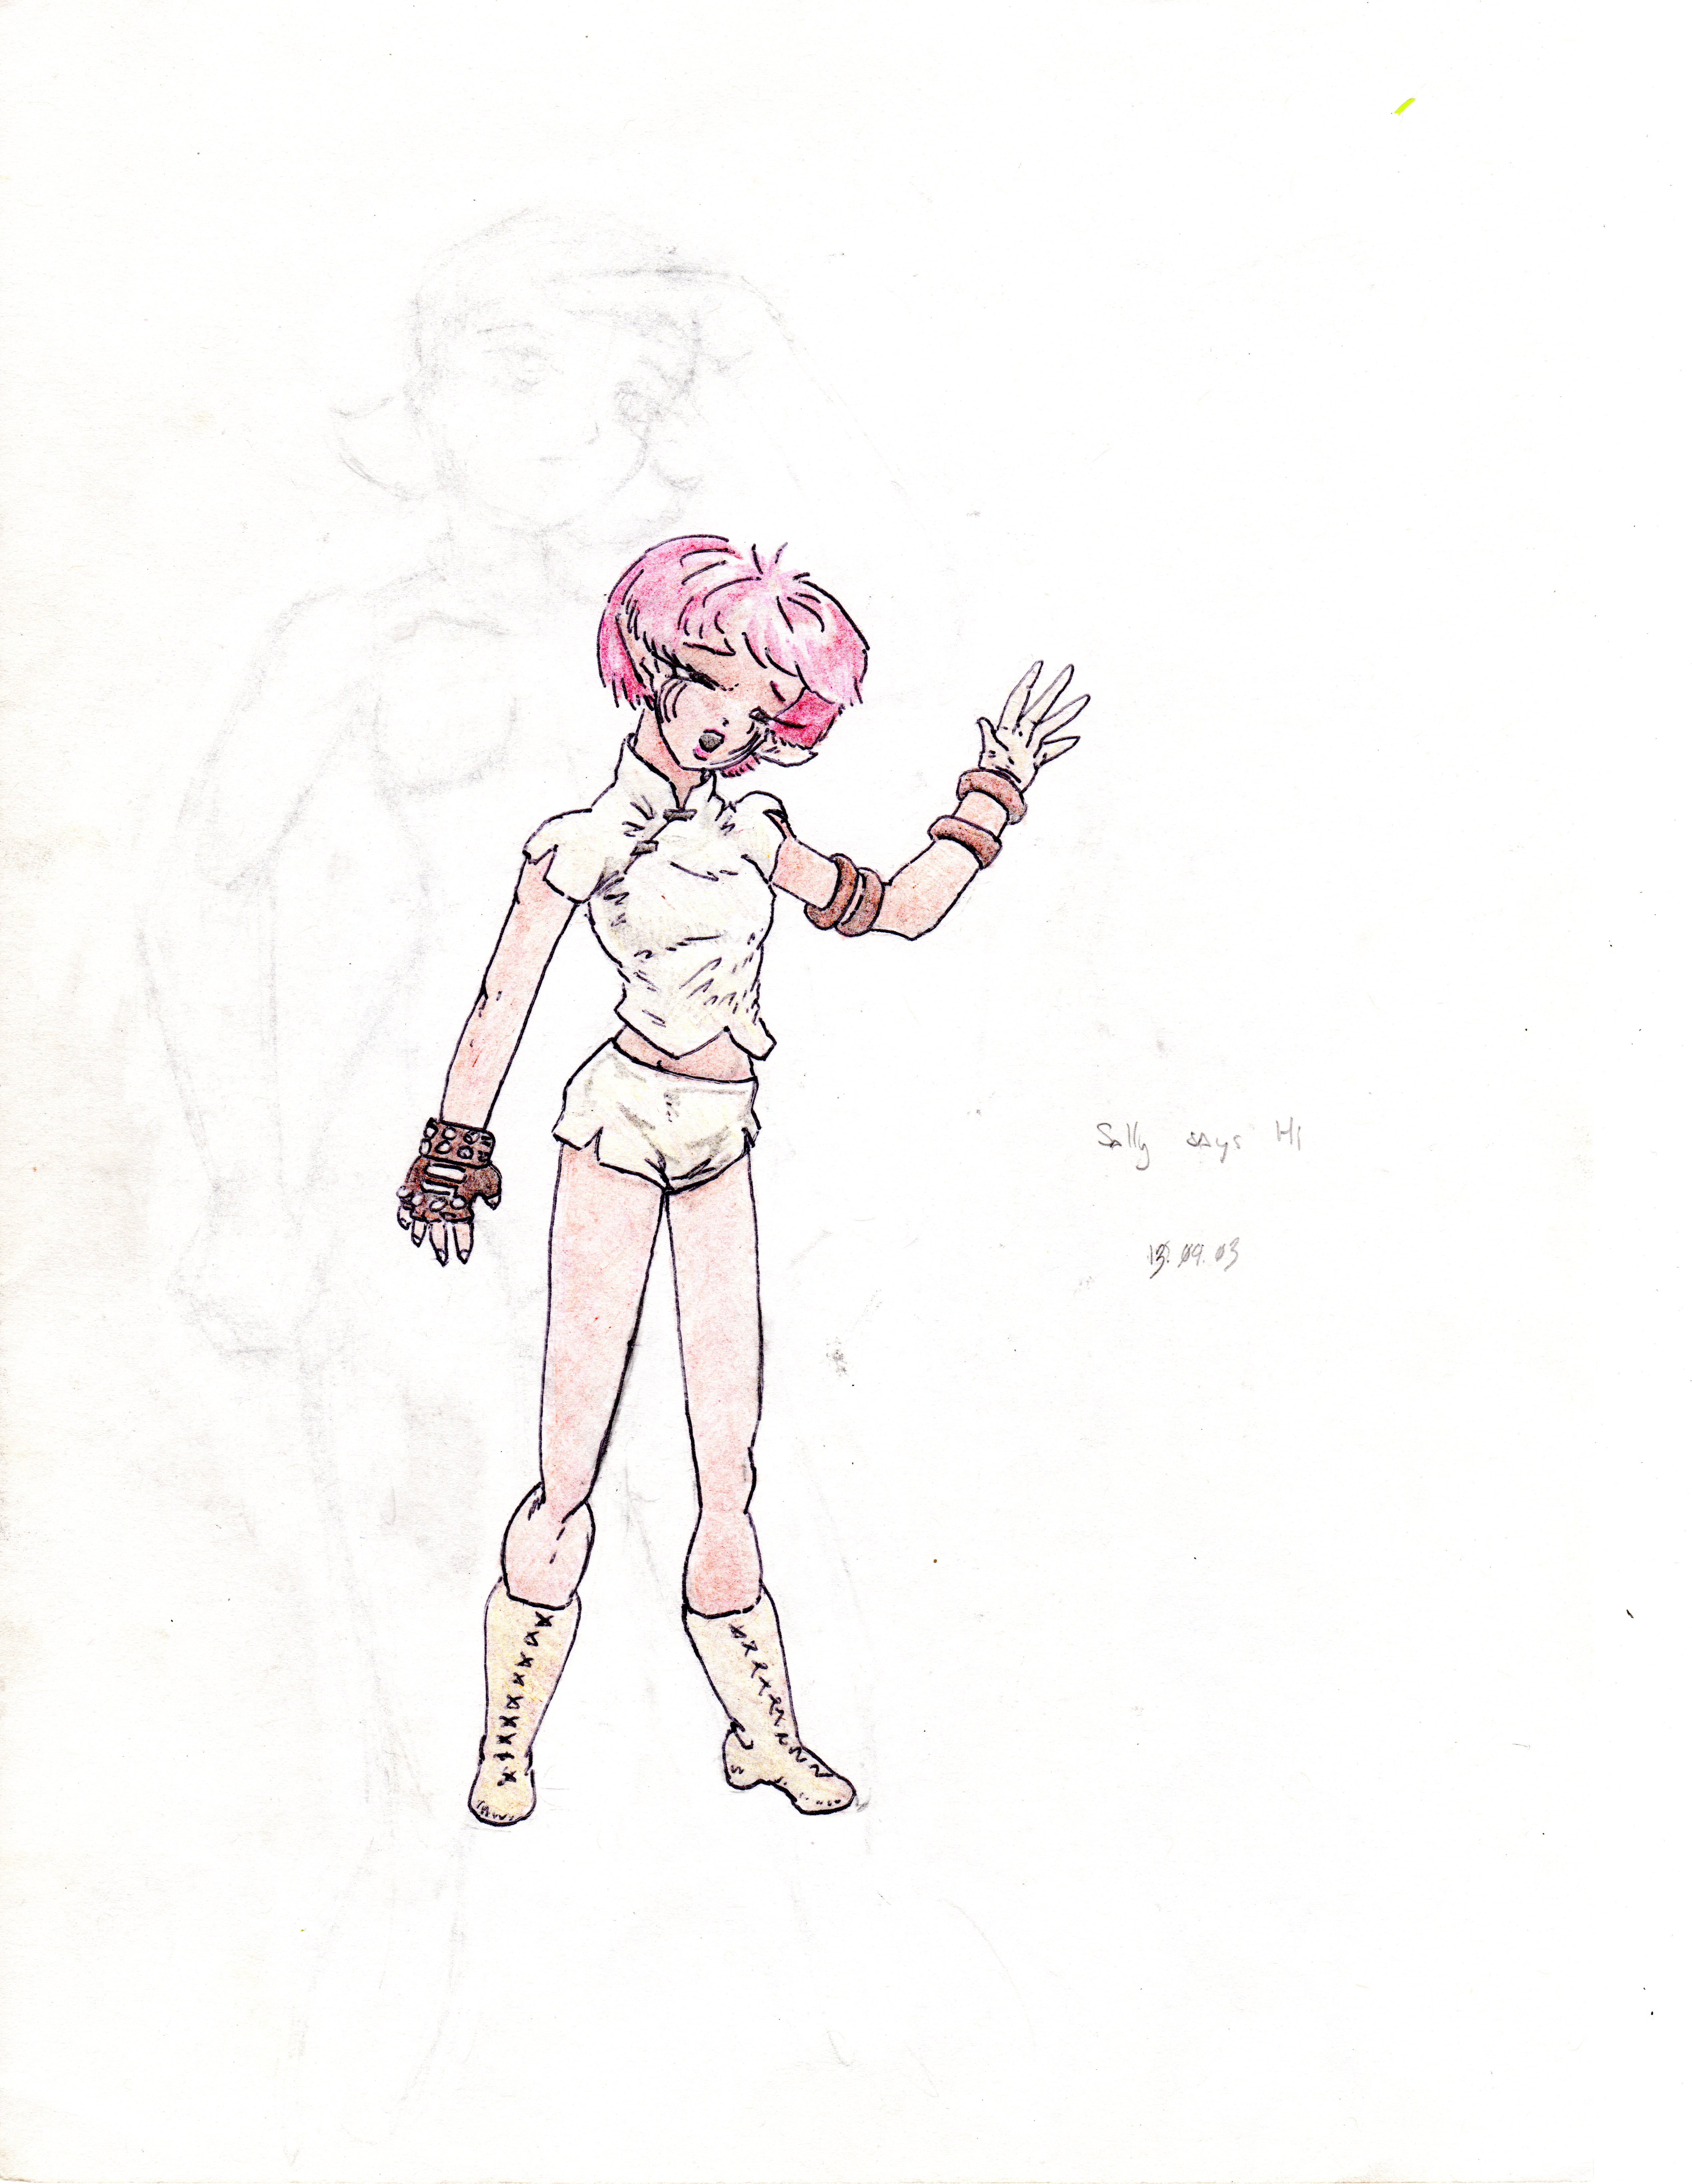 Sally says Hi
13.09.03